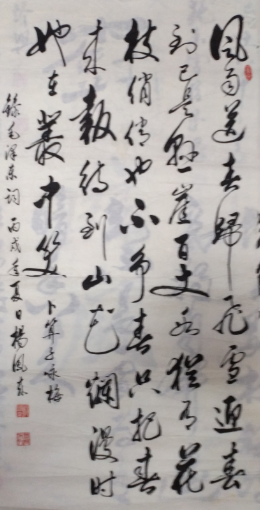 风雨送春归飞雪迎春
到已是悬崖百丈冰犹有花
枝俏俏也不争春只把春
来报待到山花烂漫时
她在丛中笑
卜算子咏梅
录毛泽东词丙戌年夏日杨风东